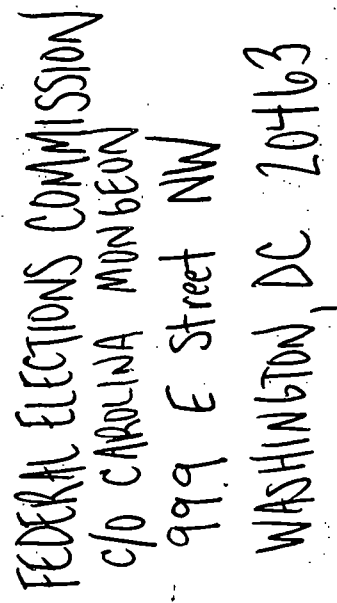 FEDERAL ELECTIONS COMMISSION
c/o CAROLINA MONGEON
999 E Street NW
WASHINGTON, DC 20463